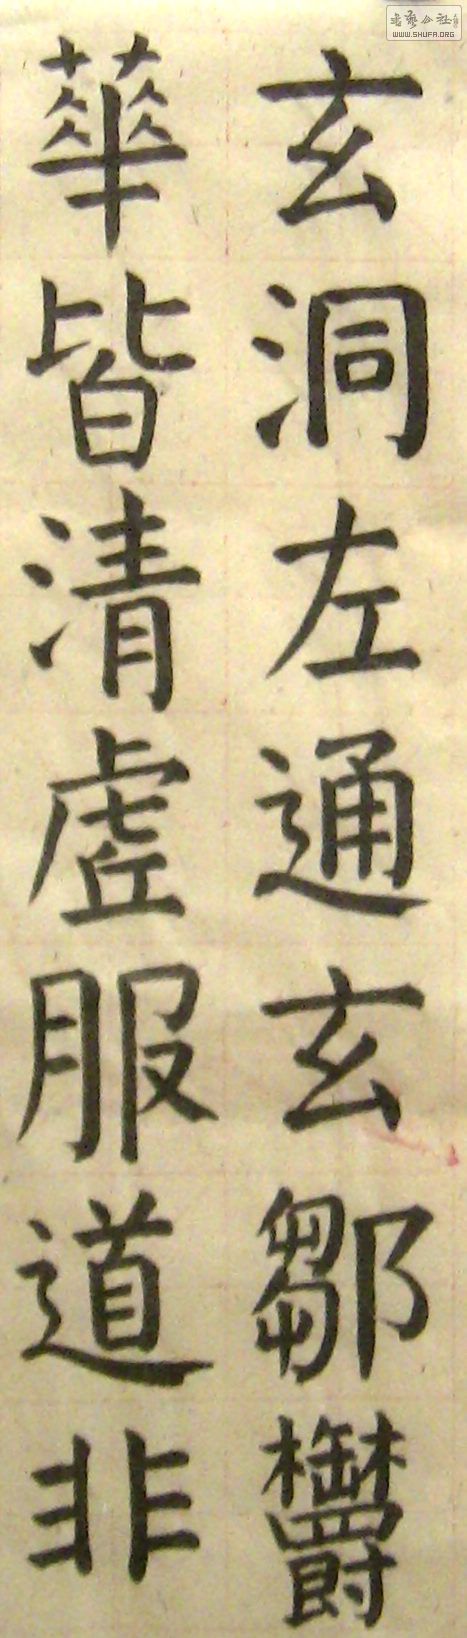 书艺公社
WWW.SHUFA.ORG
玄洞左通玄鄒欝
華皆清虗服道非